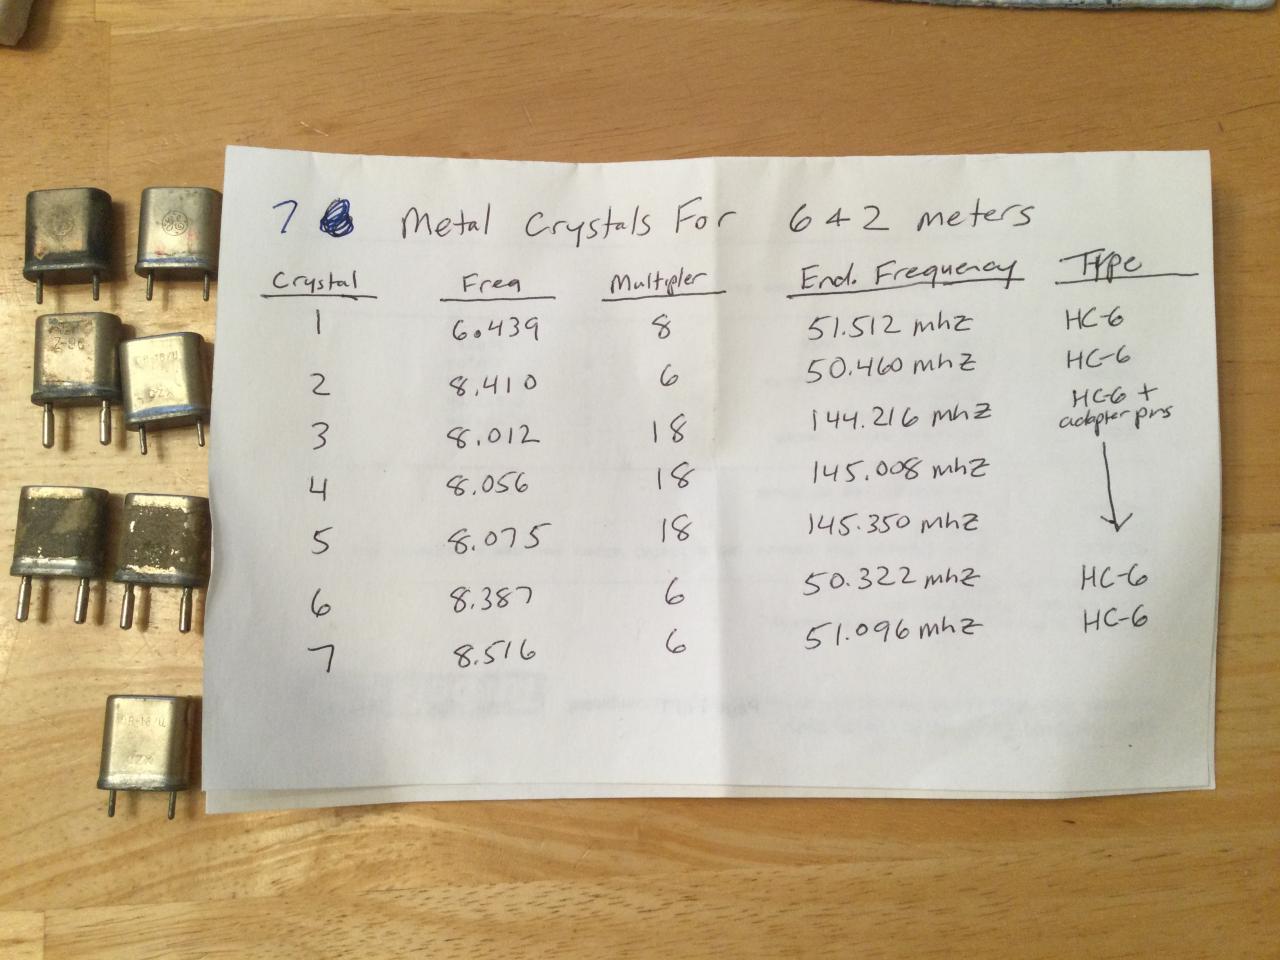 GE
Z-9C
CR-18/U
UZX
CR-18/U
UZX
7 Metal Crystals For 6 + 2 meters
Crystal Freq Multipler End. Frequency Type
1 6.439 8 51.512 mhz HC-6
2 8.410 6 50.460 mhz HC-6
3 8.012 18 144.216 mhz HC-6 + adapter pins
4 8.056 18 145.008 mhz
5 8.075 18 145.350 mhz
6 8.387 6 50.322 mhz HC-6
7 8.516 6 51.096 mhz HC-6